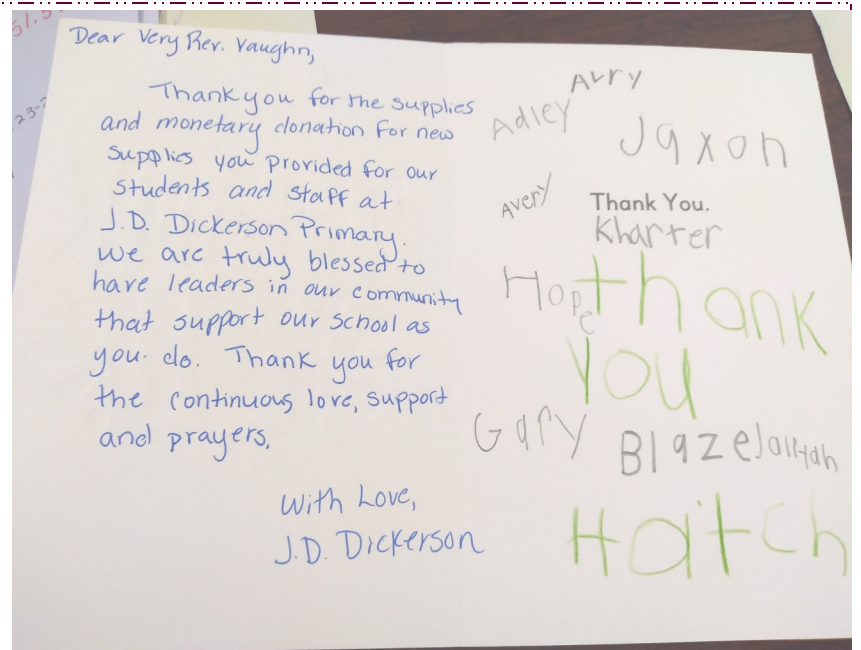 Dear Very Rev. Vaughn,
Thank you for the supplies
and monetary donation for new
supplies you provided for our
students and staff at
J.D. Dickerson Primary.
We are truly blessed to
have leaders in our community
that support our school as
you do. Thank you for
the continuous love, support
and prayers,
With Love,
J.D. Dickerson
Avry
Adley
Jaxon
Avery
Thank You.
Kharter
Hope
thank
you
Gary
Blaze
Haitch